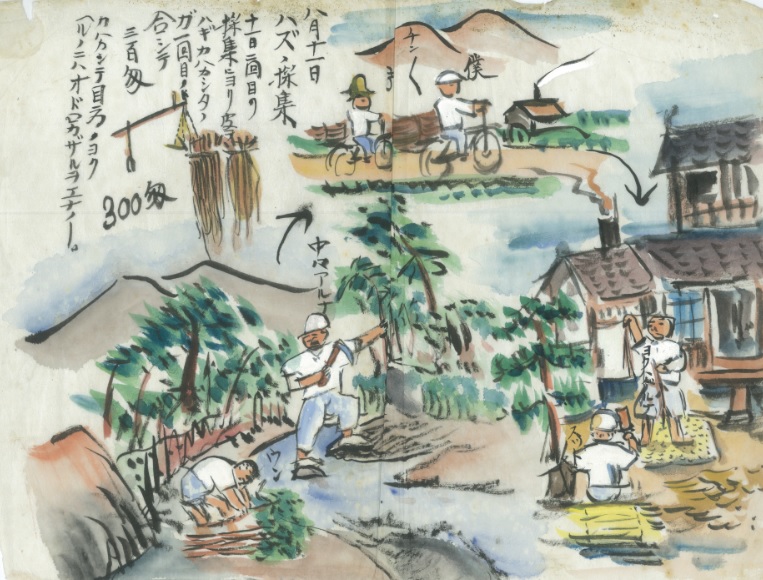 八月十一日
ハズノ採集
十一日二回目の
採集ニヨリ皮
ハギカハカシタノ
ガ一回目ト
合シテ
三百匁
300匁
カハカシテ目方ノヨク
ヘルノニハオドロカザルヲエナイ。
僕
ケン
中々アルナ
ウン